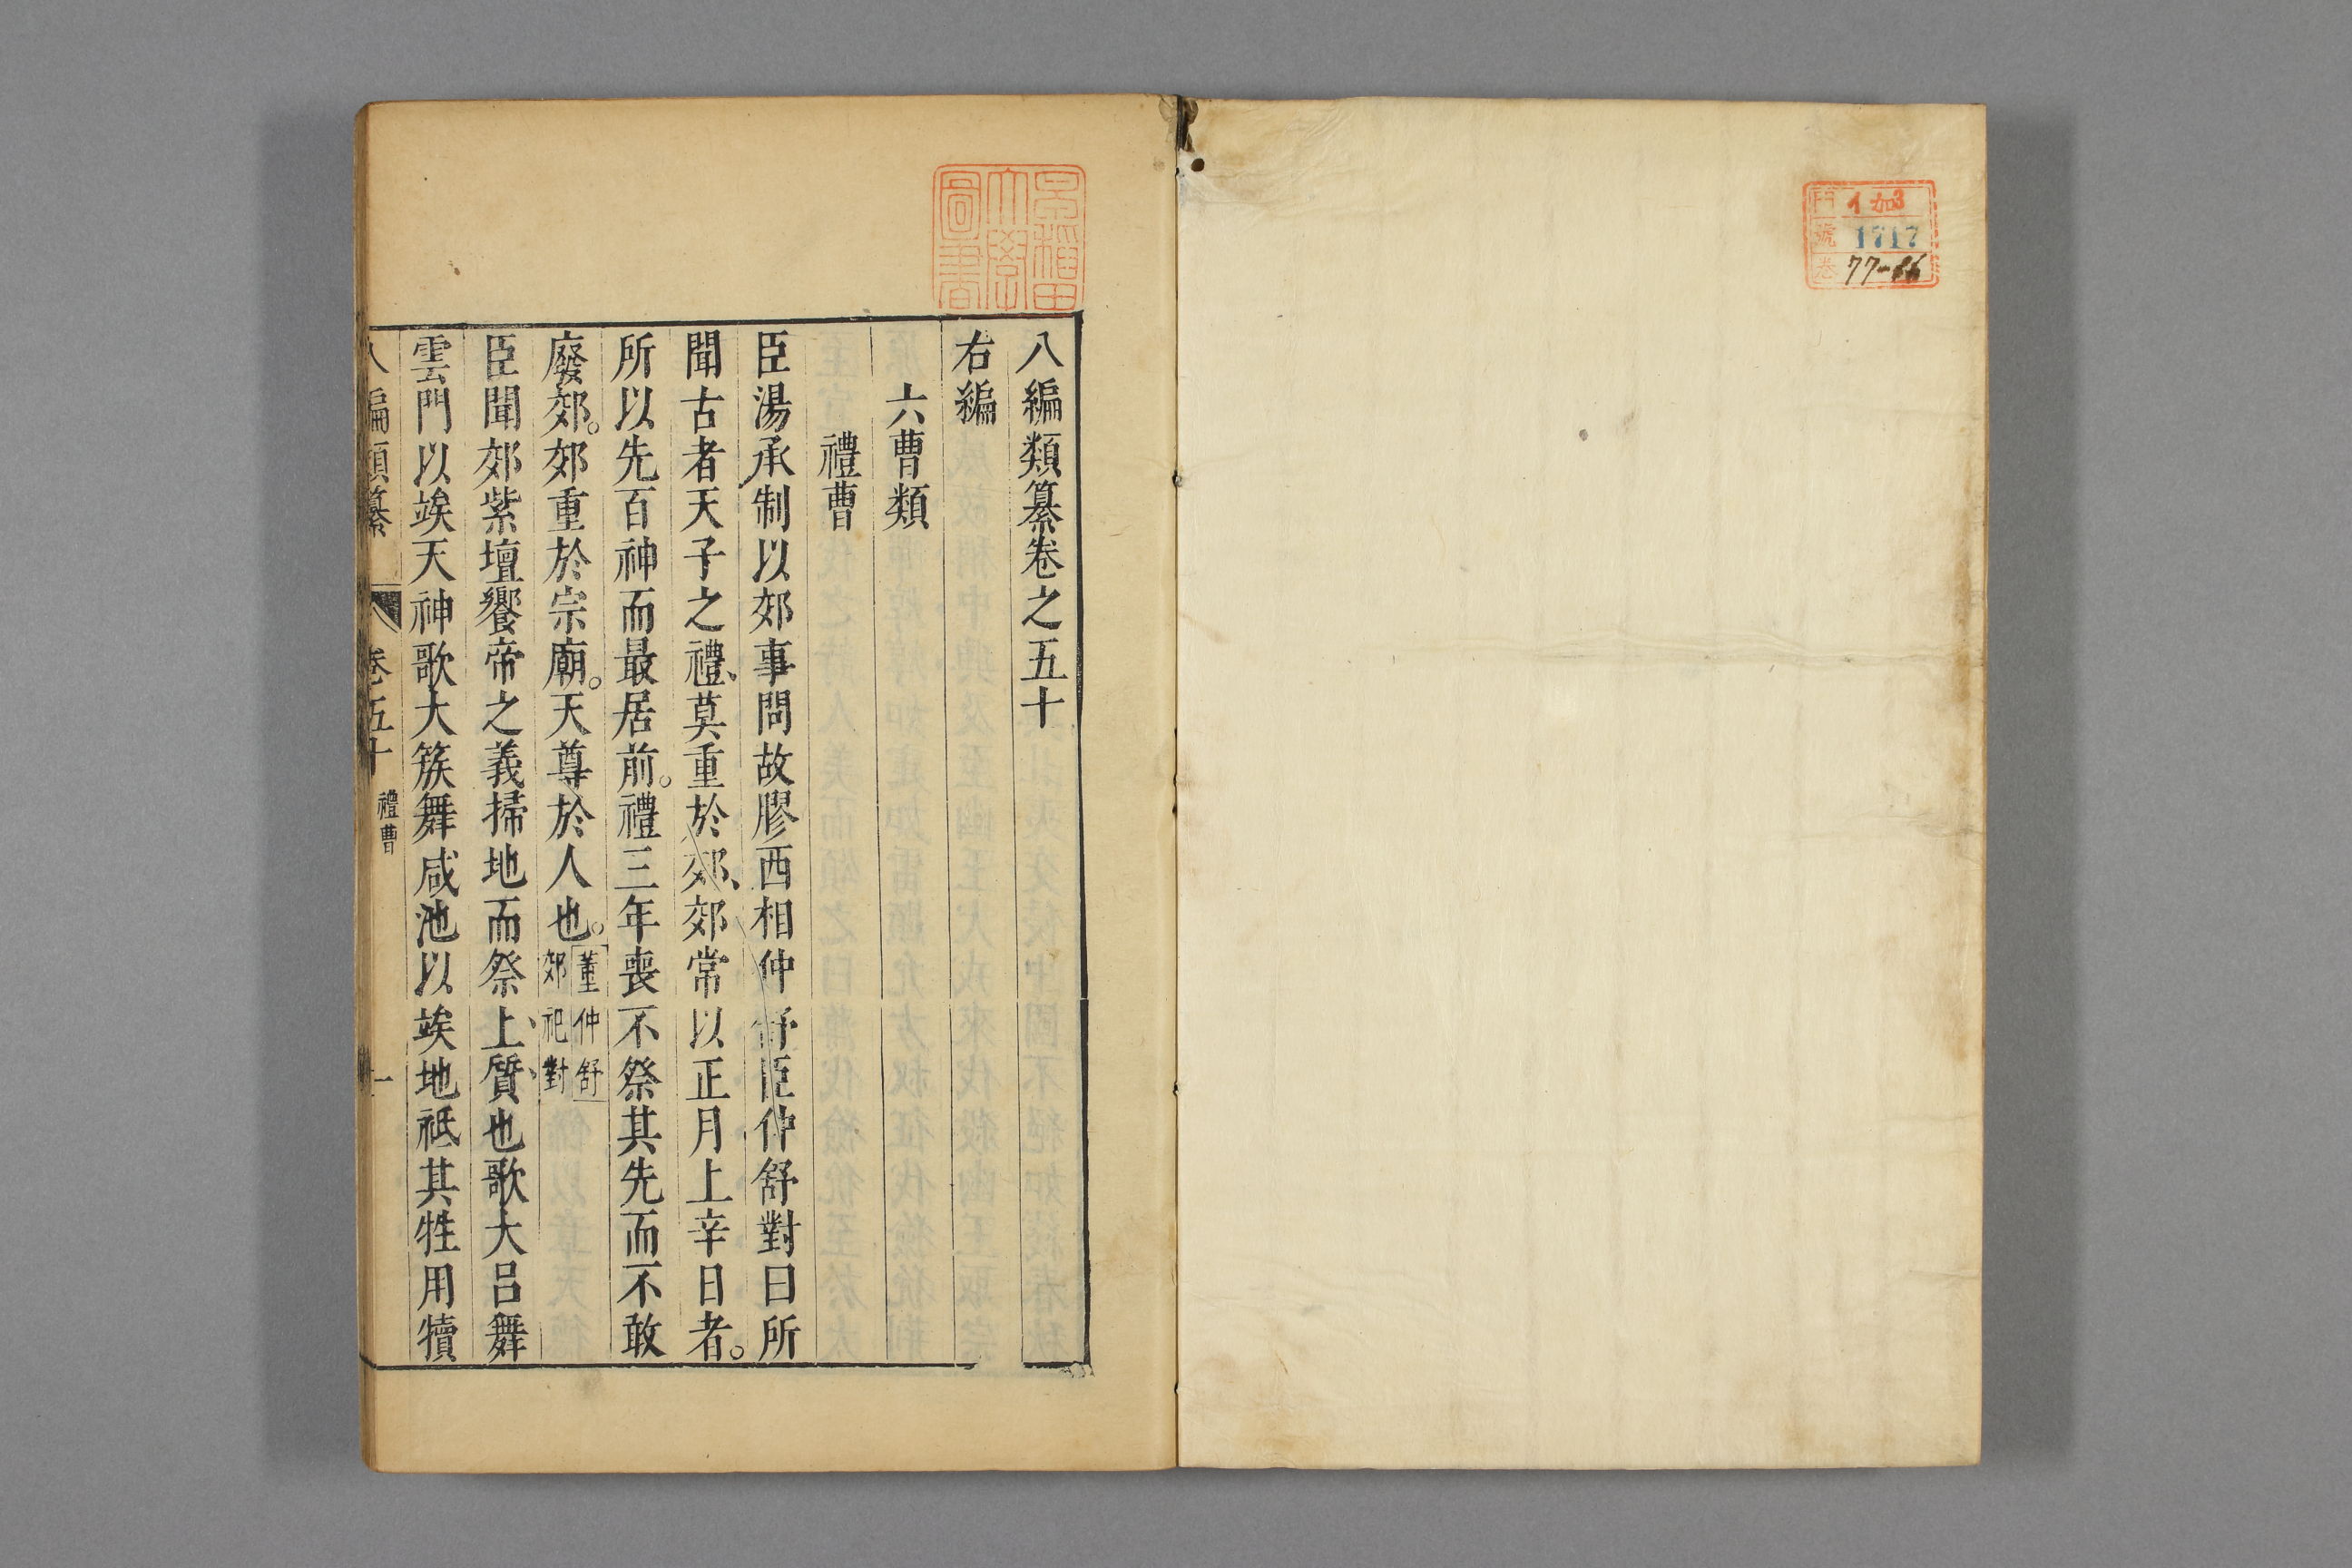 門 イ加3
號 1717
卷 77-66
早稲田
大學
圖書
八編類纂卷之五十
右編
六曹類
禮曹
臣湯承制以郊事問故膠西相仲舒臣仲舒對曰所
聞古者天子之禮、莫重於郊、郊常以正月上辛日者。
所以先百神而最居前。禮三年喪不祭其先而不敢
廢郊。郊重於宗廟。天尊於人也。董仲舒
郊祀對
臣聞郊紫壇饗帝之義掃地而祭上、質、也歌大呂舞
雲門以竢天神歌大簇舞咸池以竢地祇其牲用犢
八編類纂 卷五十 禮曹 一